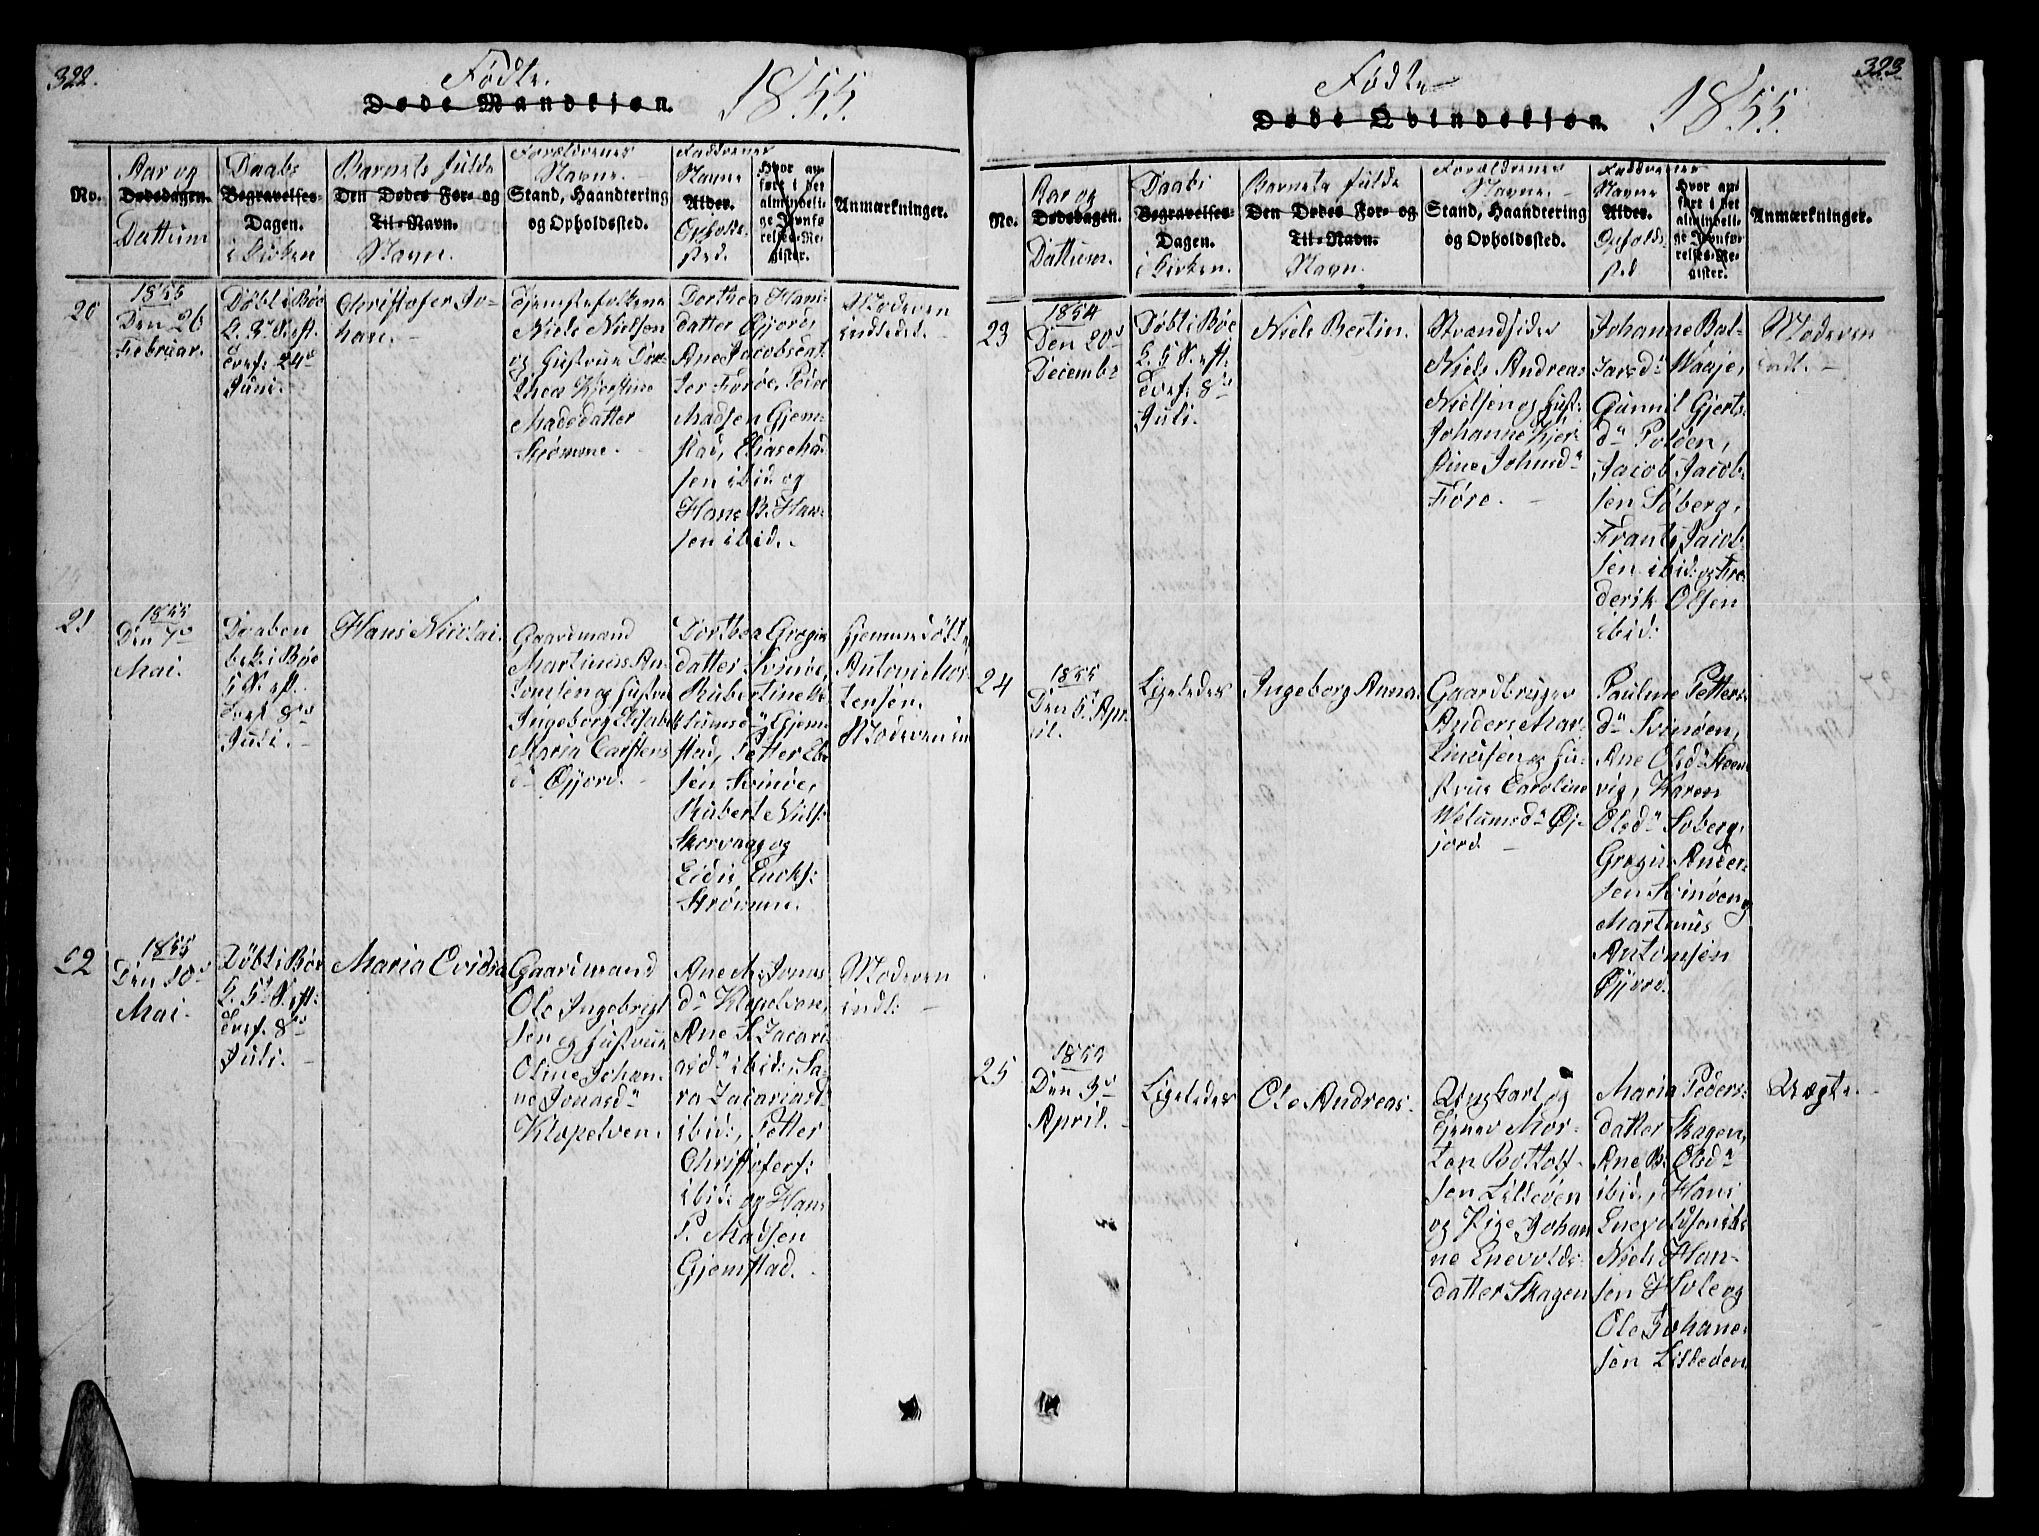 322.
Fødte.
Døde Mandkjøn.
1855.
No.
Aar og
Dødsdagen.
Dattum
Daabs
Begravelses-
Dagen.
i Kirken
Barnets fulde
Den Dødes For- og
Til-Navn.
Navn.
Forældrenes
Navne.
Stand, Haandtering
og Opholdssted.
Faddrenes
Navne
Alder.
Opholds
sted.
Hvor an-
ført i det
almindeli-
ge Jevnfø-
relses-Re-
gister.
Anmærkninger.
20
1855
Den 26
Februar.
Døbt i Bøe
2. S. eft.
Tref: 24de
Juni.
Christofer Jo-
han.
Tjenestefolkene
Niels Nielsen
og Hustrue Do-
thea Kjerstine
Madsdatter
Strømme.
Dorthea Hans-
datter Øjord,
Ane Jacobsdat-
ter Førøe, Peder
Madsen Gjem-
stad, Elias Mad
sen ibid. og
Hans B. Han-
sen ibid.
Moderen
indledet.
21
1855
Den 7de
Mai.
Daaben
bek. i Bøe
5 S. eft.
Tref 8de
Juli.
Hans Nicolai.
Gaardmand
Martinus An-
tonsen og Hustrue
Ingeborg Elisabeth
Maria Carstens
dr Øjjord.
Dorthea Gregus
datter Svinøe,
Rubertine Wi
lumsdr Gjem-
stad, Petter El
sen Svinøe,
Rubert Niels:
Skorvaag og
Eidis Enoks:
Strømme.
Hjemme døbt af
Antoni Mor-
tensen.
Moderen in
22
1855
Den 10de
Mai.
Døbt i Bøe
5. S. eft:
Tref. 8de
Juli.
Maria Ovidia
Gaardmand
Ole Ingebrigt
sen og Hustrue
Oline Johan-
ne Jonasdr
Klopelven.
Ane M. Jonas
dr Klopelven,
Ane S. Zacari
asdr ibid., Sa-
ra Zacariasd.
ibid., Petter
Christofers:
ibid. og Hans
P. Madsen
Gjemstad.
Moderen
indl:
323
Fødte
Døde Qvindekjøn.
1855.
No.
Aar og
Dødsdagen.
Dattum.
Daabs
Begravelses-
Dagen.
i Kirken.
Barnets fulde
Den Dødes For- og
Til-Navn.
Navn.
Forældrenes
Navne.
Stand, Haandtering
og Opholdssted.
Faddrenes
Navne
Alder.
Opholds
sted
Hvor an-
ført i det
almindeli-
ge Jevnfø-
relses-Re-
gister.
Anmærkninger.
23
1854
Den 20de
Decembr
Døbt i Bøe
5. S. eft.
Tref: 8de
Juli.
Niels Bertin.
Strandsider
Niels Andreas
Nielsen og Hust:
Johanne Kjer-
stine Johnsdr
Føre.
Johanne Bal-
tarsdr Waaje,
Gunnil Gjerts
dr Poløen,
Jacob Jacob-
sen Søberg,
Frants Jacob-
sen ibid. og Fre-
derik Olsen
ibid:
Moderen
indl.
24
1855
Den 6. Apr-
il.
Ligeledes
Ingeborg Anna.
Gaardbruger
Anders Mar-
tinusen og Hu-
strue Caroline
Wilumsdr Øj-
jord.
Pauline Petters-
dr Svinøen,
Ane Olsdr Steen
vig, Karen
Olsdr Søberg,
Gregus Ander-
sen Svinøen og
Martinus
Antonsen
Øjjord.
25
1855
Den 3de
April.
Ligeledes
Ole Andreas.
Ungkarl og
Tjener Mor-
ten Bottolf-
sen Lilleven
og Pige Johan
ne Enevolds-
datter Skagen
Maria Peders-
datter Skagen,
Ane B. Olsdr
ibid., Hans
Enevoldsen ib:
Niels Han-
sen Hole og
Ole Johane-
sen Lilleden
Uægte.